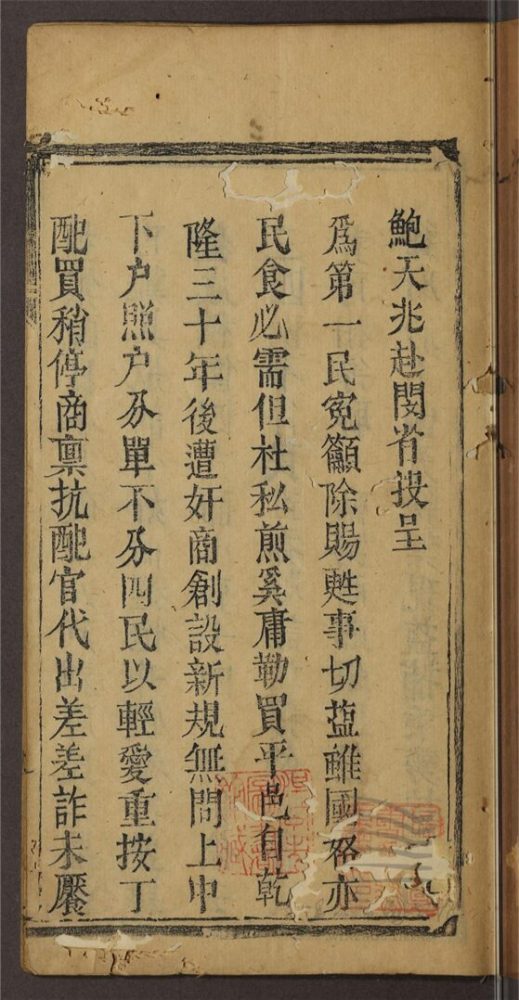 鮑天兆赴閩省投呈
爲第一民寃籲除賜甦事切鹽雖國務亦
民食必需但杜私煎奚庸勒買平邑自乾
隆三十年後遭奸商創設新規無問上中
下户照户分單不分四民以輕愛重按丁
配買稍停商稟抗配官代出差差詐未饜